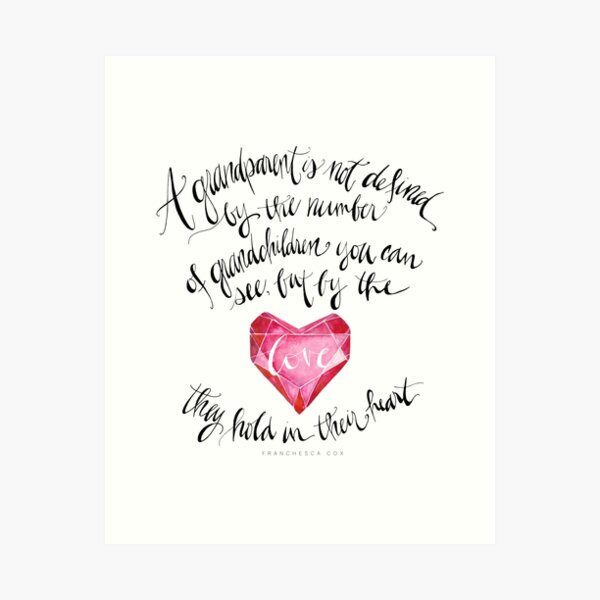 A grandparent is not defined
by the number
of grandchildren you can
see, but by the
love
they hold in their heart
FRANCHESCA COX